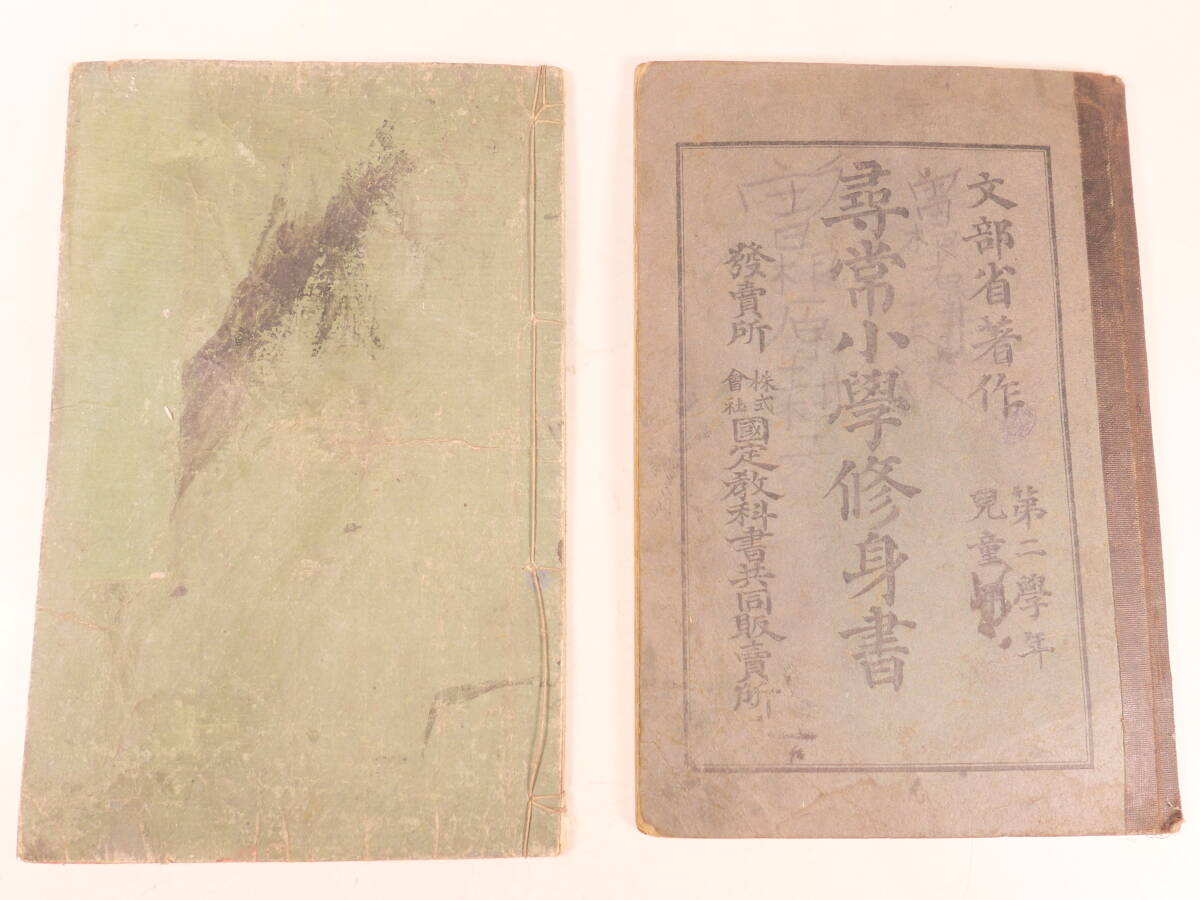 文部省著作
第二學年
兒童用
尋常小學修身書
發賣所
株式
會社
國定教科書共同販賣所